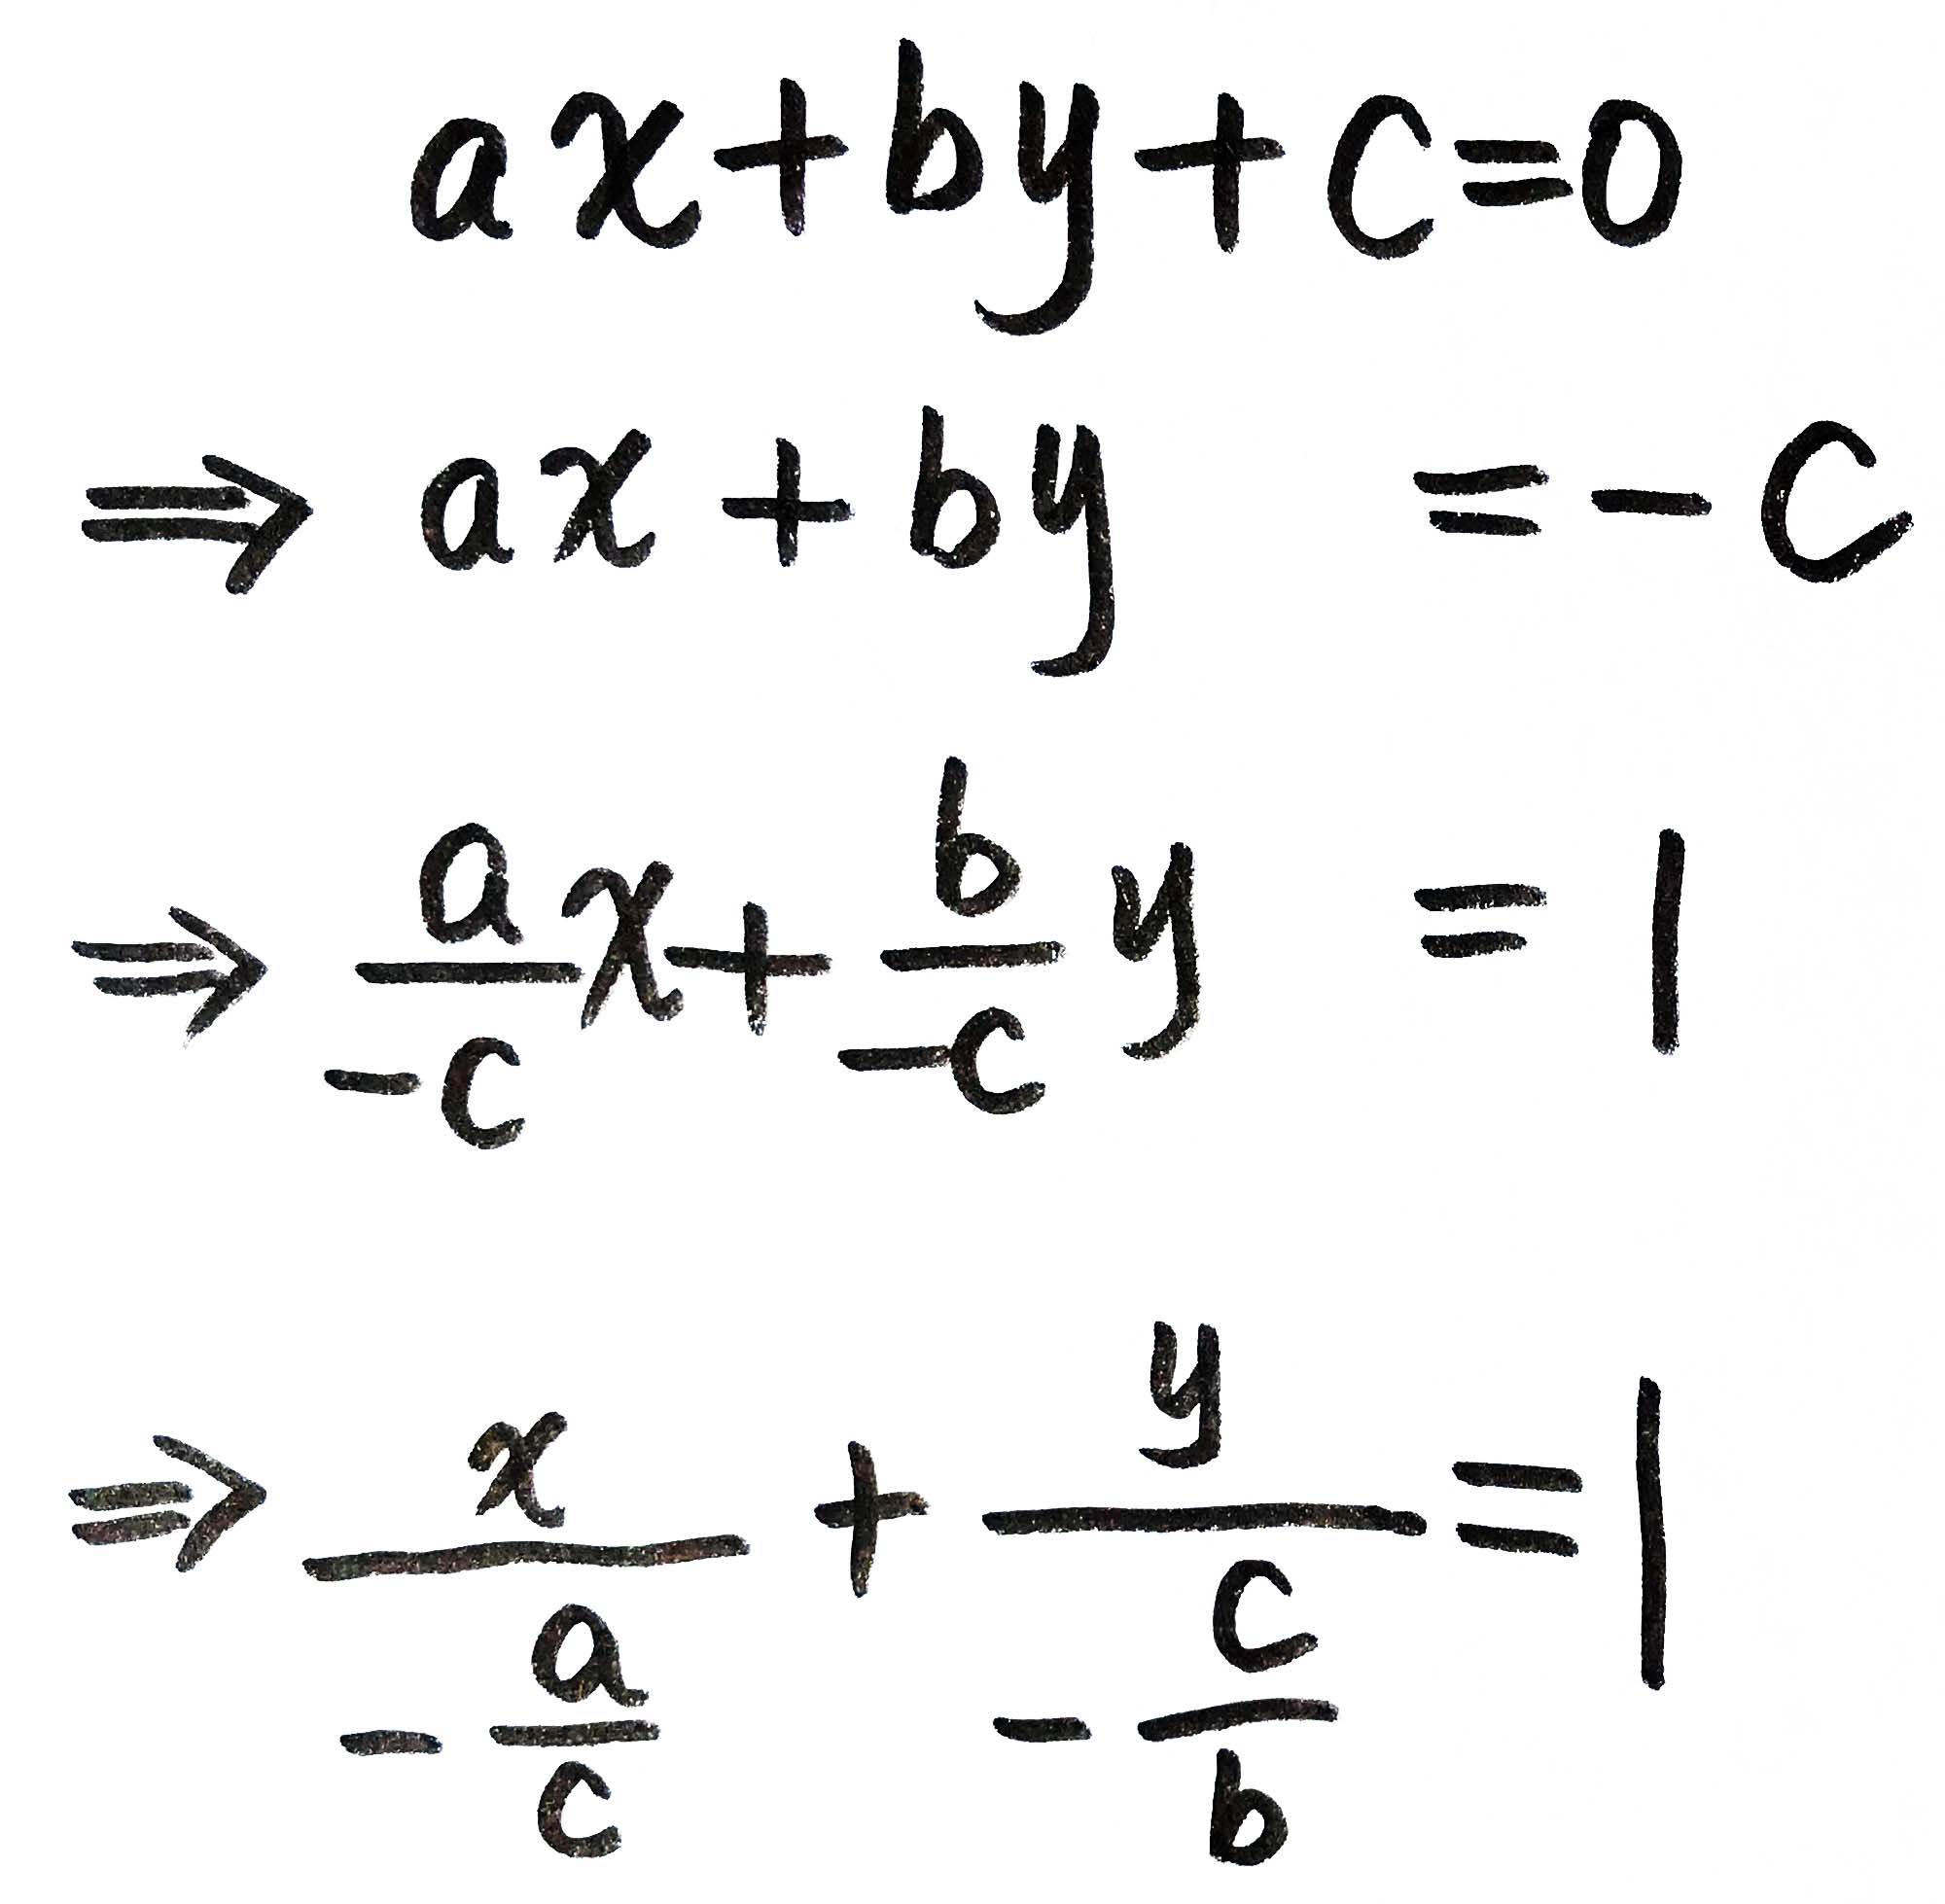 ax+by+c=0
⇒ ax + by = - c
⇒ \frac{a}{-c}x + \frac{b}{-c}y = 1
⇒ \frac{x}{-\frac{a}{c}} + \frac{y}{-\frac{c}{b}} = 1